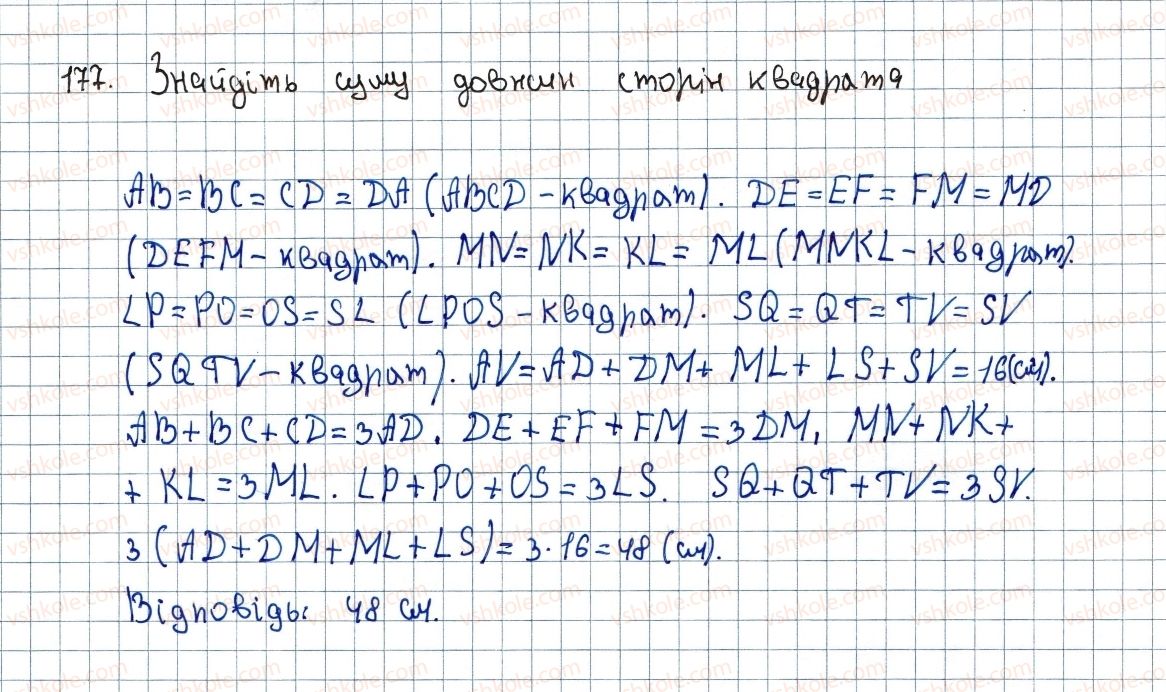 177. Знайдіть суму довжин сторін квадрата
AB = BC = CD = DA (ABCD - квадрат). DE = EF = FM = MD
(DEFM - квадрат). MN = NK = KL = ML (MNKL - квадрат).
LP = PO = OS = SL (LPOS - квадрат). SQ = QT = TV = SV
(SQTV - квадрат). AV = AD + DM + ML + LS + SV = 16 (см).
AB + BC + CD = 3AD. DE + EF + FM = 3DM, MN + NK +
+ KL = 3ML. LP + PO + OS = 3LS. SQ + QT + TV = 3SV.
3 (AD + DM + ML + LS) = 3 · 16 = 48 (см).
Відповідь: 48 см.